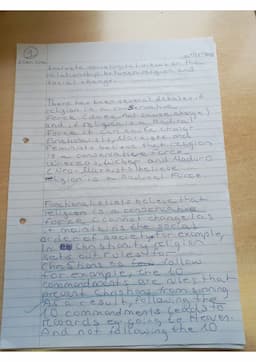 Evaluate sociologists views on the
relationship between religion and
social change.
There has been several debates if
religion is a conservative
Force (does not cause change)
and if religion is a radical
Force it can cause change
Functionalists, Marxists and
Feminists believe that religion
is a conservative force
Whereas, Weber and Maduro
(Neo-Marxist) believe
religion is a Radical Force.
Functionalists believe that
religion is a conservative
force (cannot change) as
it maintains the social
order of society. For example,
In Christianity religion
sets out rules for
Christians to follow
for example, the 10
commandments are rules that
prevent Christians from sinning
As a result, following the
10 commandments leads to
rewards eg going to Heaven.
And not following the 10